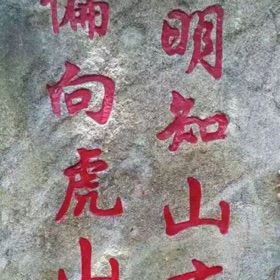 明知山有
偏向虎山